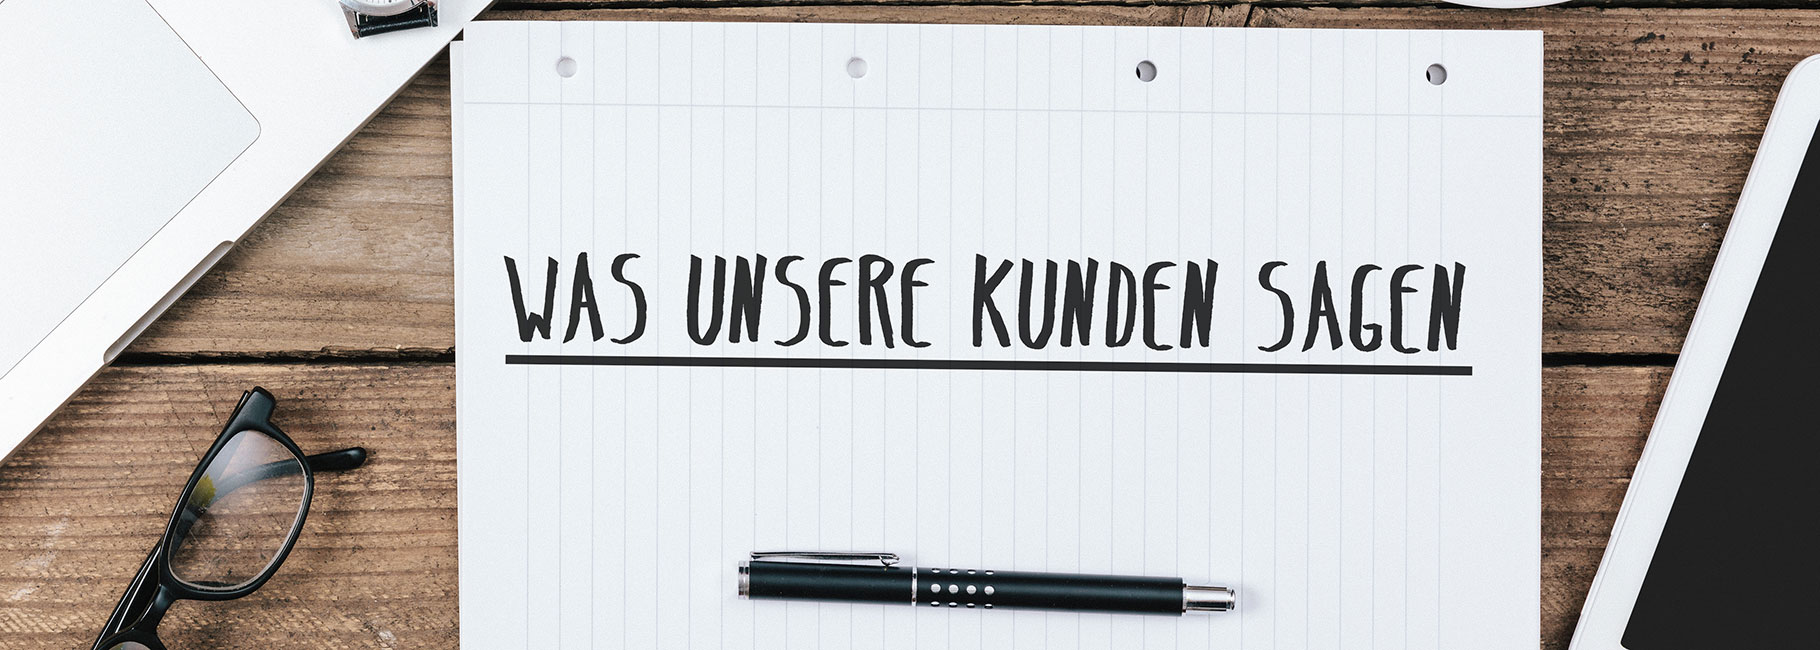 WAS UNSERE KUNDEN SAGEN